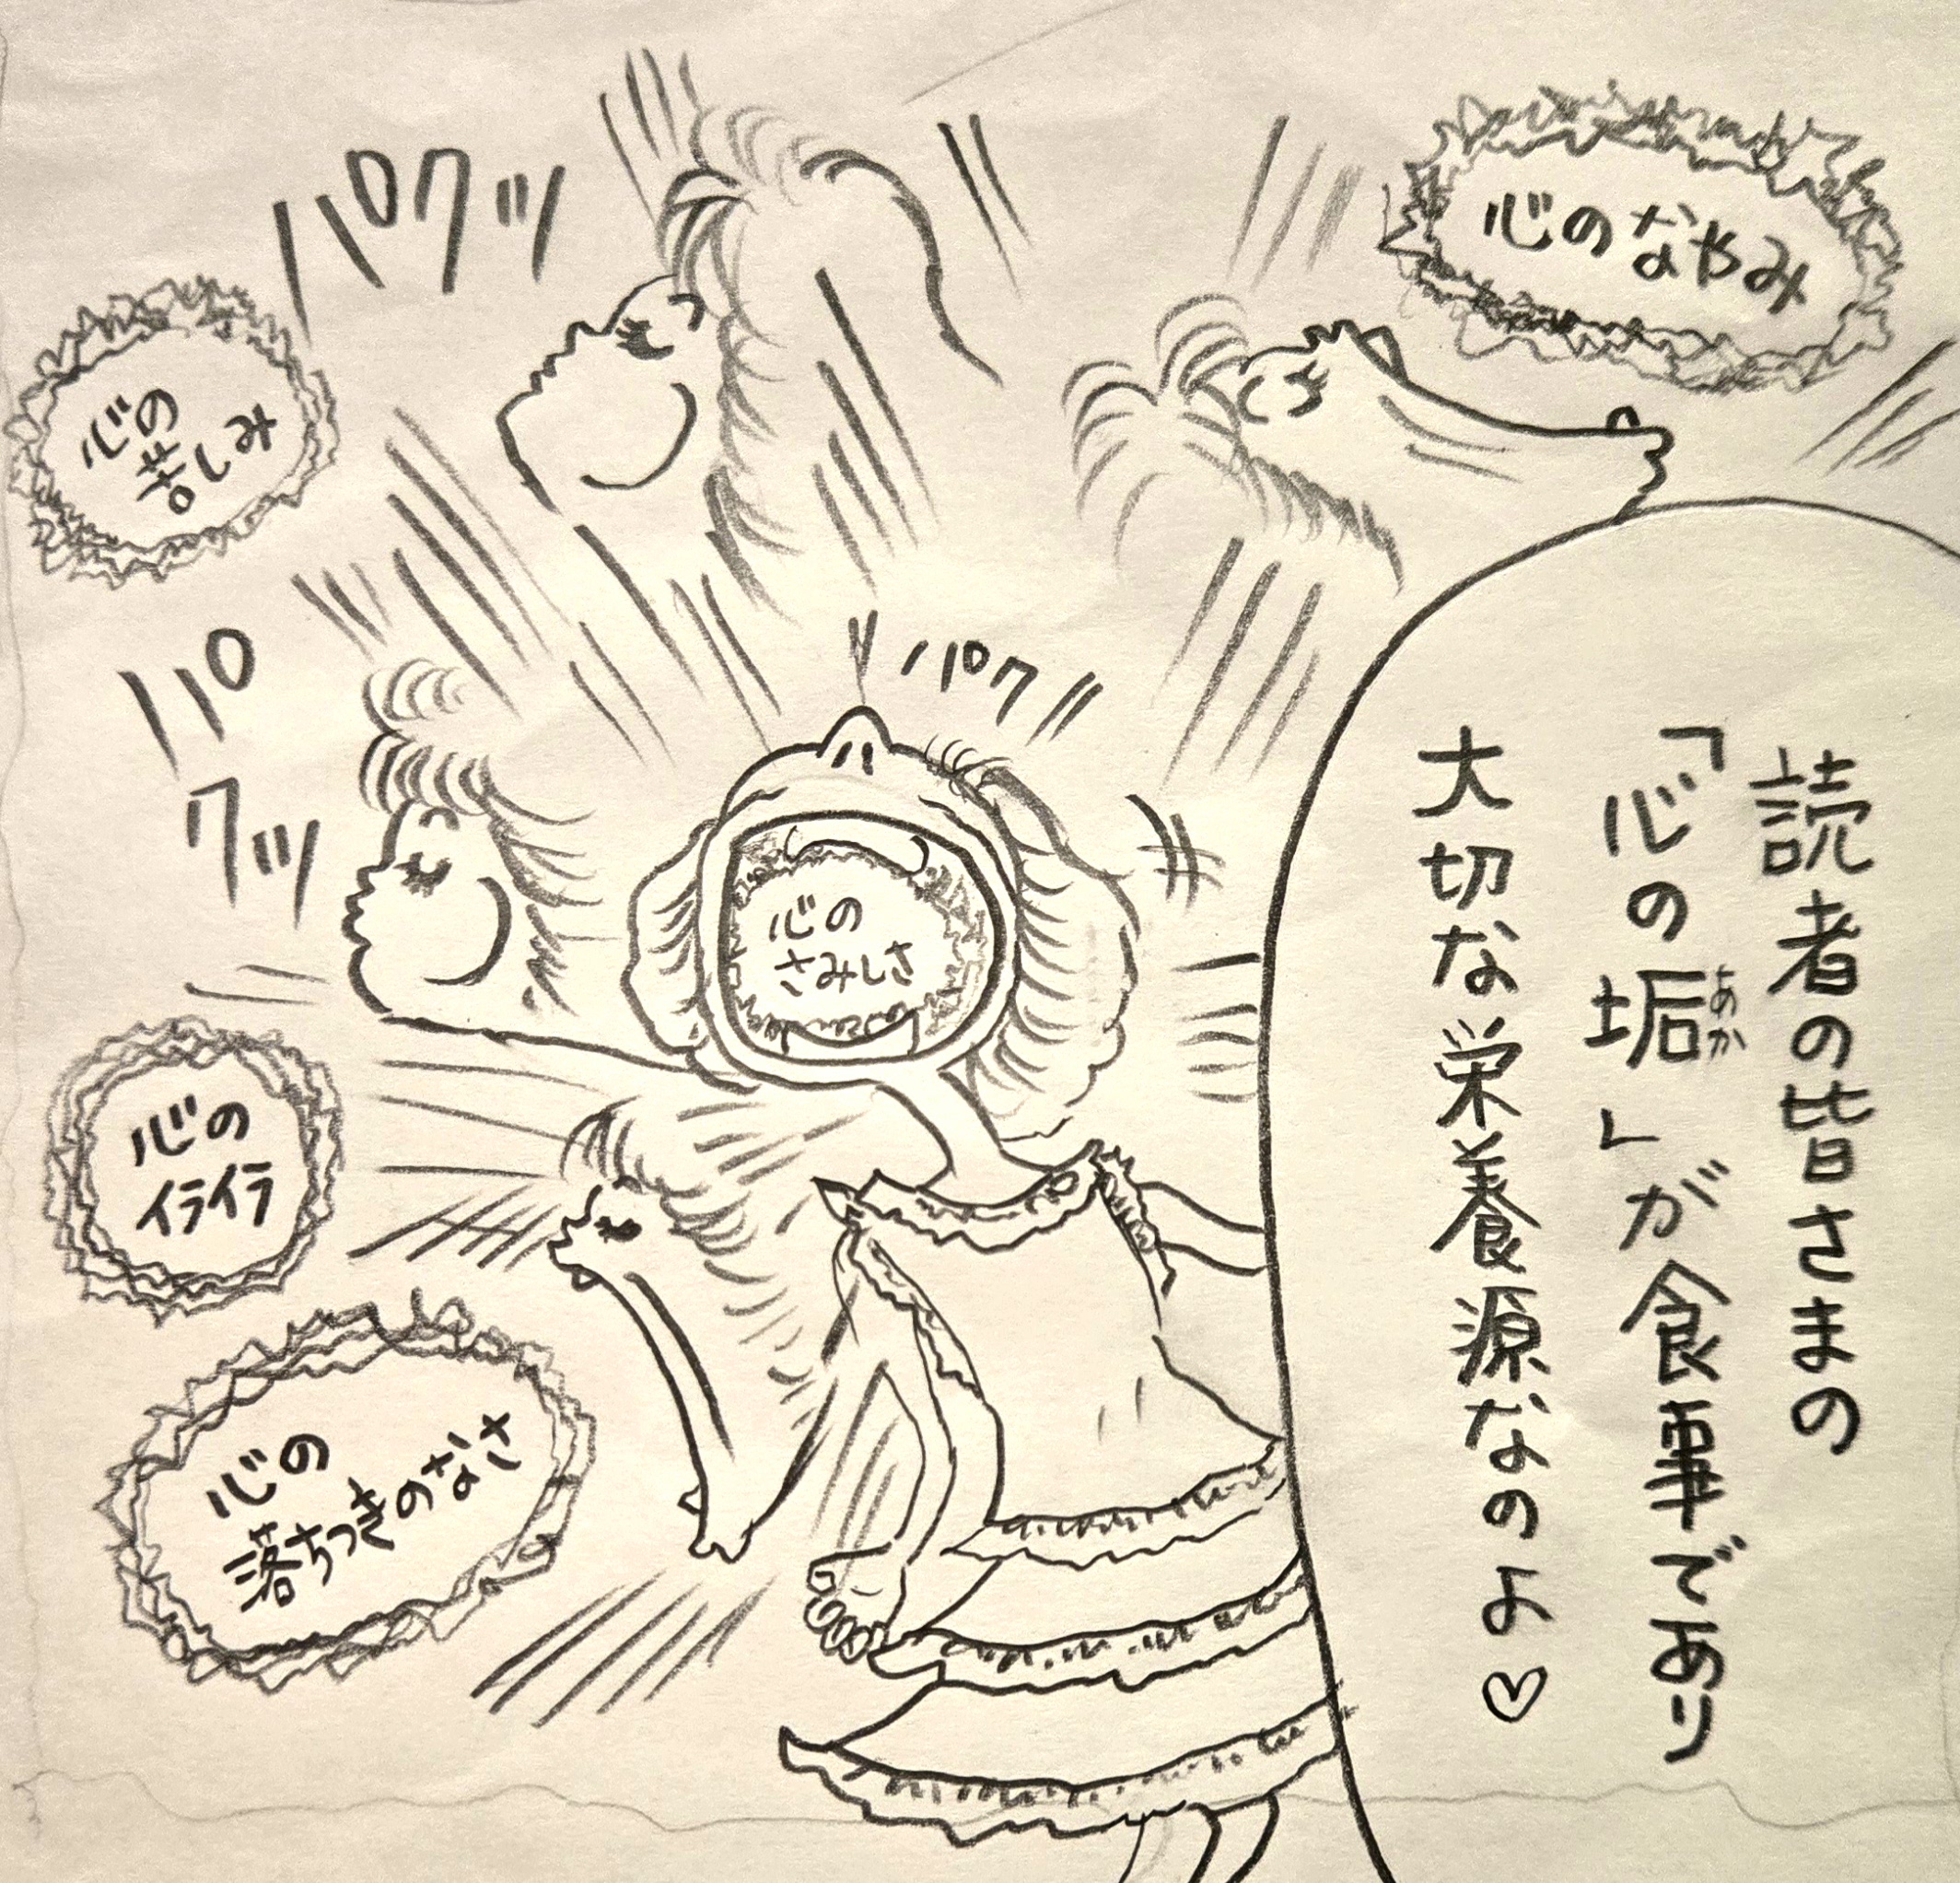 読者の皆さまの
「心の垢」が食事であり
あか
大切な栄養源なのよ♡
心のなやみ
パクッ
心の
苦しみ
パクッ
パクッ
心の
さみしさ
心の
イライラ
心の
落ちつきのなさ